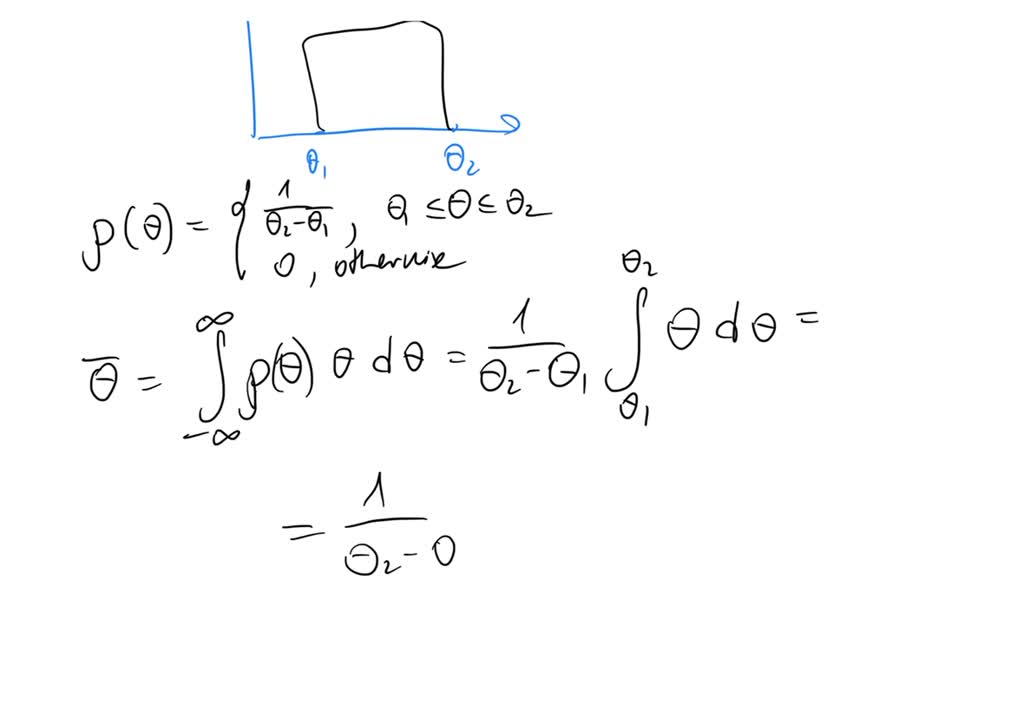 θ₁ θ₂
ρ(θ) = { 1/(θ₂-θ₁), θ₁ ≤ θ ≤ θ₂
0, otherwise
θ̅ = ∫_{-∞}^{∞} ρ(θ) θ dθ = 1/(θ₂-θ₁) ∫_{θ₁}^{θ₂} θ dθ =
= 1/(θ₂-0